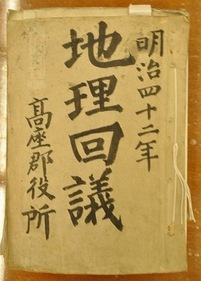 明治四十二年
地理回議
髙座郡役所